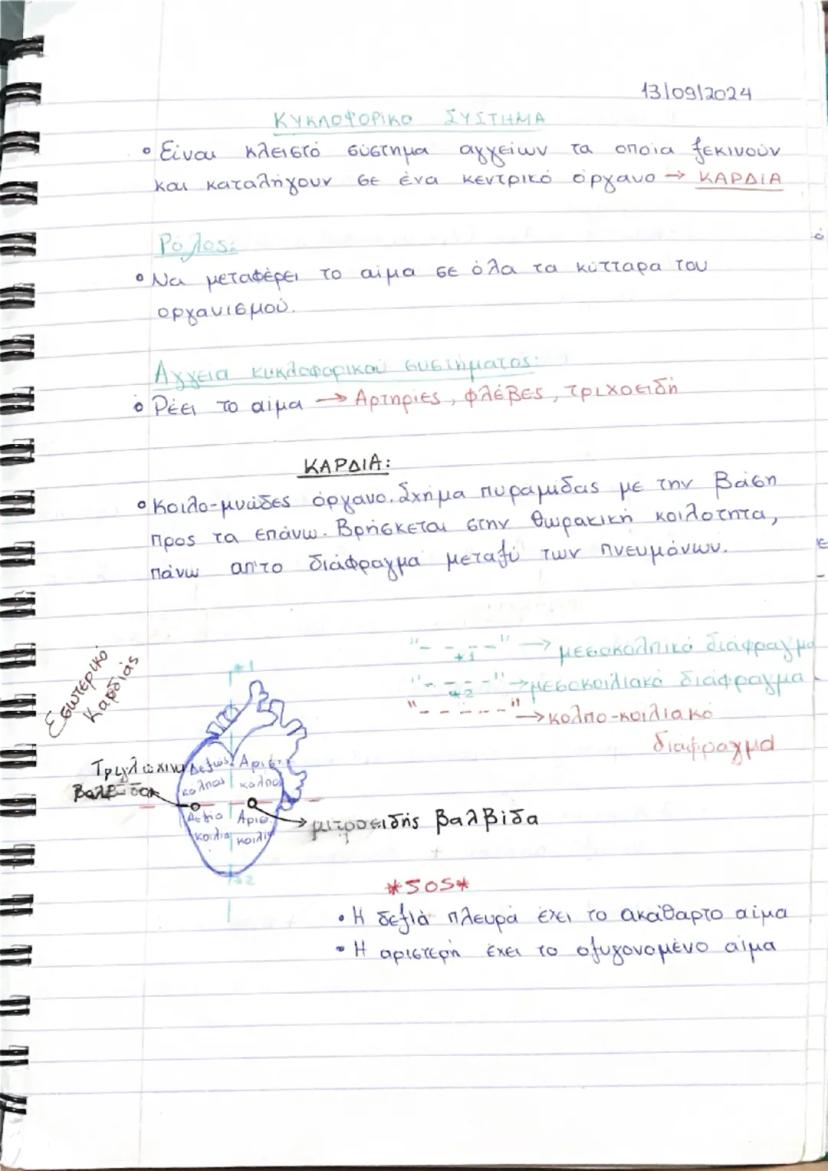 13/09/2024
ΚΥΚΛΟΦΟΡΙΚΟ ΣΥΣΤΗΜΑ
• Είναι κλειστό σύστημα αγγείων τα οποία ξεκινούν
και καταλήγουν σε ένα κεντρικό όργανο → ΚΑΡΔΙΑ
Ρόλος:
• Να μεταφέρει το αίμα σε όλα τα κύτταρα του
οργανισμού.
Αγγεία κυκλοφορικού συστήματος:
• Ρέει το αίμα → Αρτηρίες, φλέβες, τριχοειδή
ΚΑΡΔΙΑ:
• Κοιλο-μυώδες όργανο. Σχήμα πυραμίδας με την βάση
προς τα επάνω. Βρίσκεται στην θωρακική κοιλότητα,
πάνω απ'το διάφραγμα μεταξύ των πνευμόνων.
Εσωτερικό
Καρδιάς
"- - - - -" → μεσοκολπικό διάφραγμα
*1
"- - - - -" → μεσοκοιλιακό διάφραγμα
*2
"- - - - -" → κολπο-κοιλιακό
διάφραγμα
*1
Τριγλώχινα
Βαλβίδα
Δεξιός
κόλπος
Αριστ.
κόλπο
Δεξιά
κοιλία
Αρισ.
κοιλί
→ μιτροειδής βαλβίδα
*2
*SOS*
• Η δεξιά πλευρά έχει το ακάθαρτο αίμα
• Η αριστερή έχει το οξυγονομένο αίμα